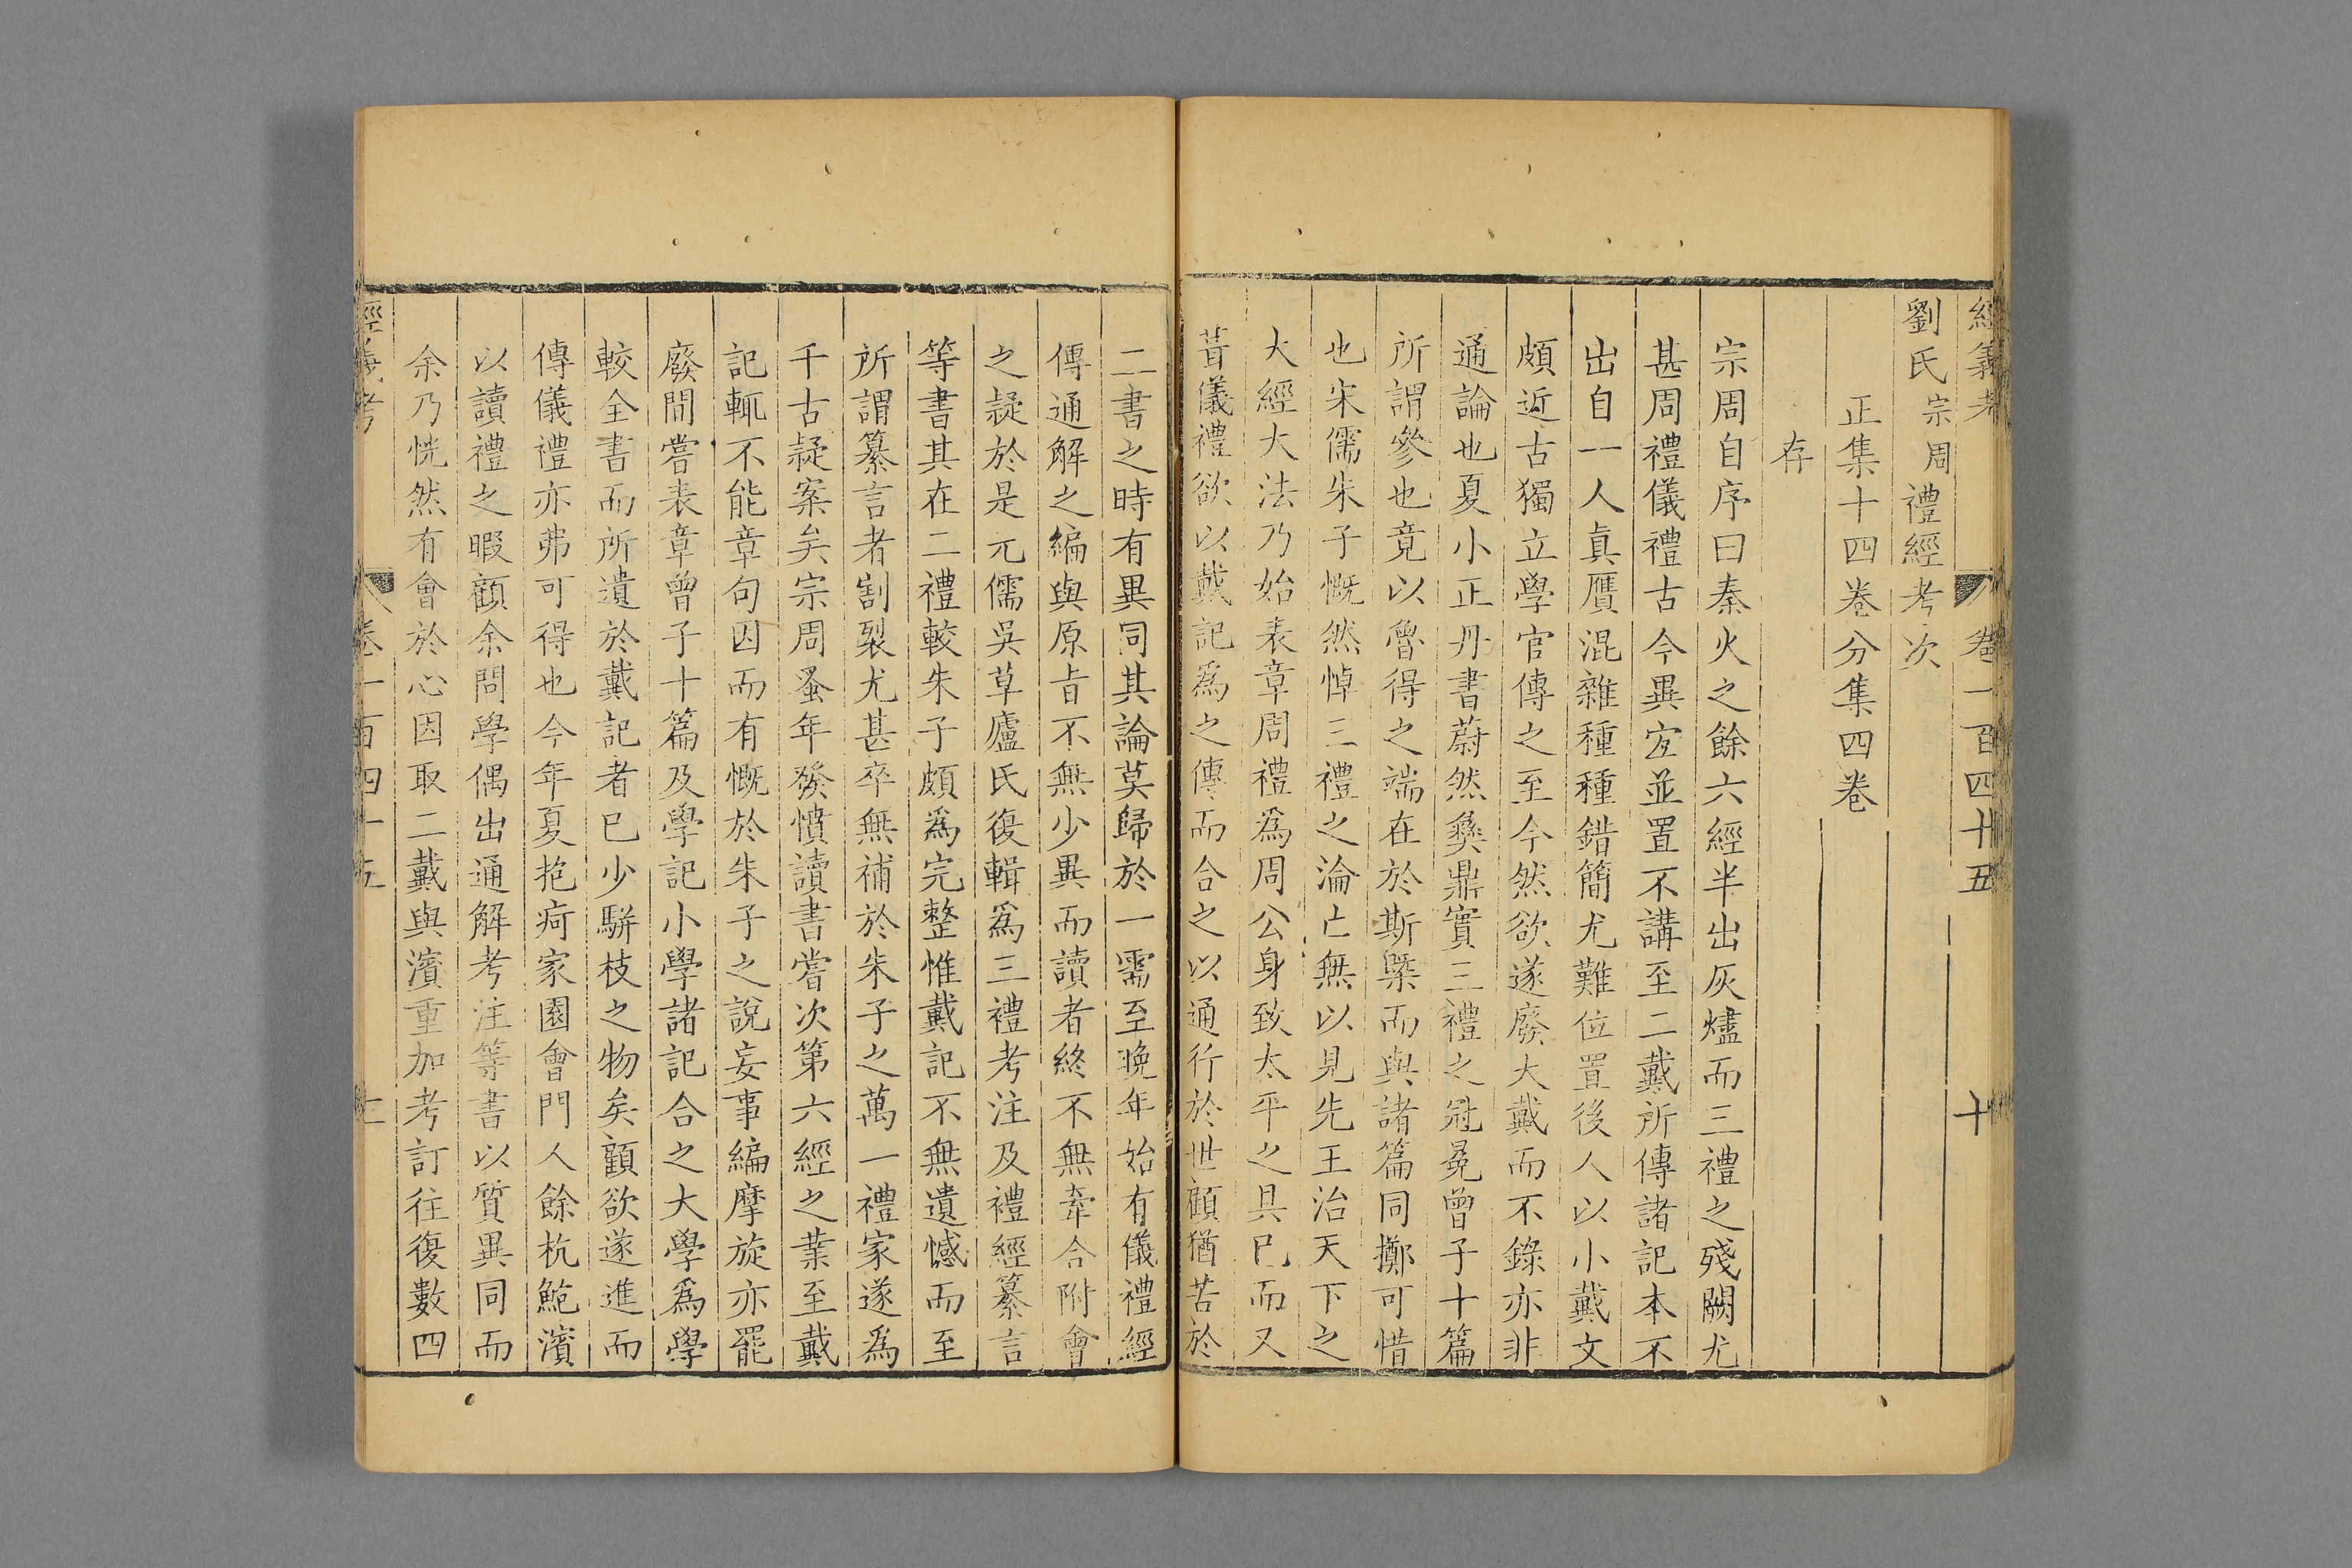 經義考 卷一百四十五 十
劉氏宗周禮經考次
正集十四卷分集四卷
存
宗周自序曰秦火之餘六經半出灰燼而三禮之殘闕尤
甚周禮儀禮古今異宜並置不講至二戴所傳諸記本不
出自一人真贋混雜種種錯簡尤難位置後人以小戴文
頗近古獨立學官傳之至今然欲遂廢大戴而不錄亦非
通論也夏小正丹書蔚然彝鼎實三禮之冠冕曾子十篇
所謂參也竟以魯得之端在於斯槩而與諸篇同擲可惜
也宋儒朱子慨然悼三禮之淪亡無以見先王治天下之
大經大法乃始表章周禮為周公身致太平之具已而又
著儀禮欲以戴記為之傳而合之以通行於世顧猶苦於
二書之時有異同其論莫歸於一需至晚年始有儀禮經
傳通解之編與原旨不無少異而讀者終不無牽合附會
之疑於是元儒吳草廬氏復輯為三禮考注及禮經纂言
等書其在二禮較朱子頗為完整惟戴記不無遺憾而至
所謂纂言者割裂尤甚卒無補於朱子之萬一禮家遂為
千古疑案矣宗周蚤年發憤讀書嘗次第六經之業至戴
記輒不能章句因而有慨於朱子之說妄事編摩旋亦罷
廢間嘗表章曾子十篇及學記小學諸記合之大學為學
較全書而所遺於戴記者已少駢枝之物矣顧欲遂進而
傳儀禮亦弗可得也今年夏抱疴家園會門人餘杭鮑濱
以讀禮之暇顧余問學偶出通解考注等書以質異同而
余乃恍然有會於心因取二戴與濱重加考訂往復數四
經義考 卷一百四十五